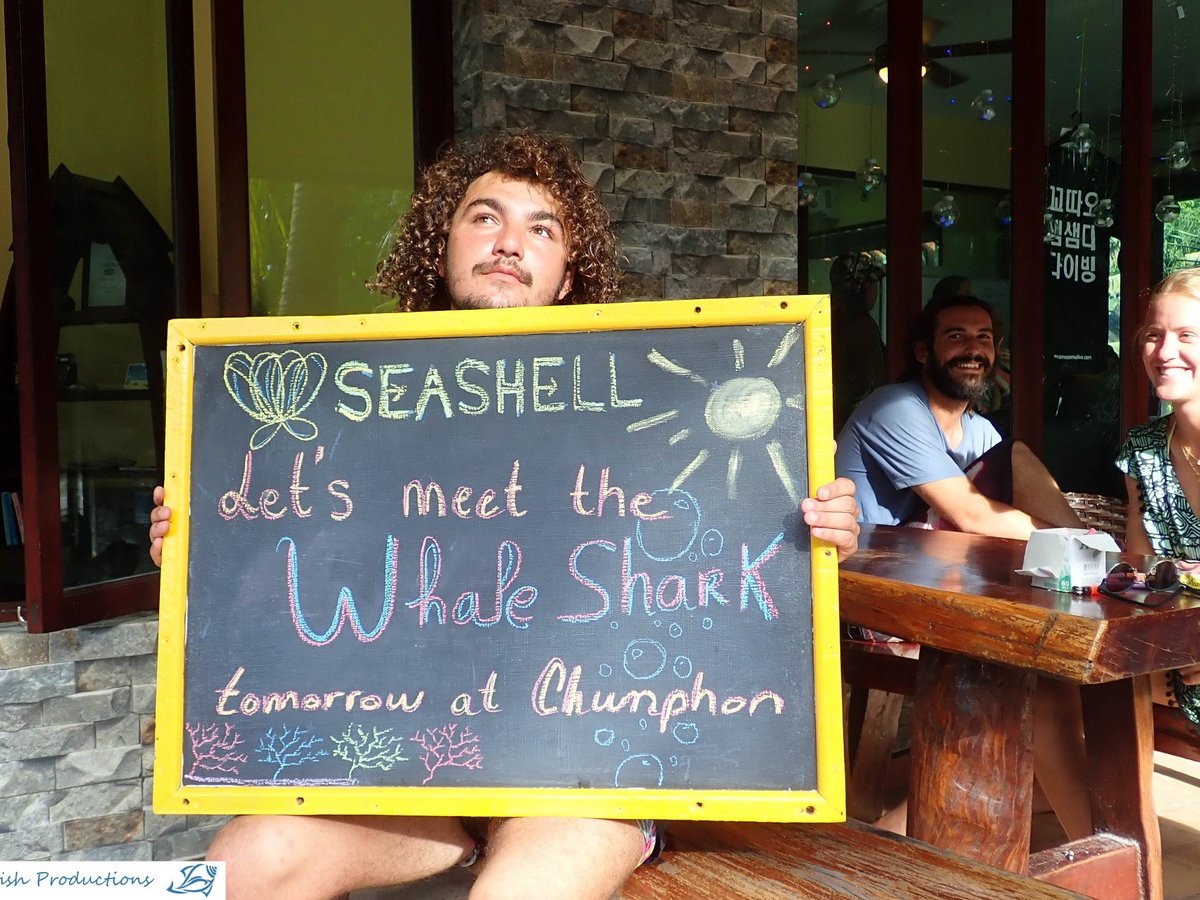 SEASHELL
Let's meet the
Whale Shark
tomorrow at Chumphon
꼬따오
샘샘디
다이빙
ish Productions